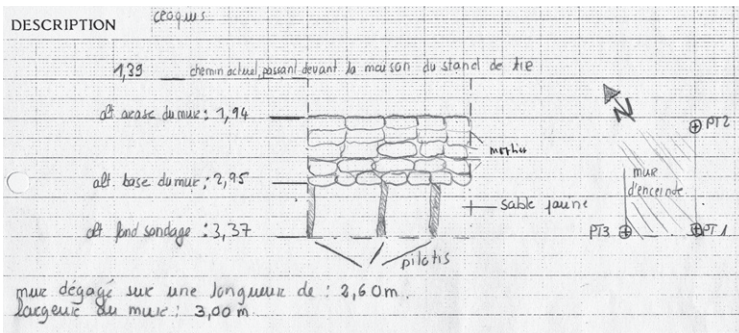 DESCRIPTION
croquis
1,39 chemin actuel, passant devant la maison du stand de tir
alt arase du mur : 1,94
mortier
alt. base du mur : 2,95
sable jaune
alt fond sondage : 3,37
pilotis
N
PT2
mur
d'enceinde
PT3
PT1
mur dégagé sur une longueur de : 2,60 m.
largeur du mur : 3,00 m.